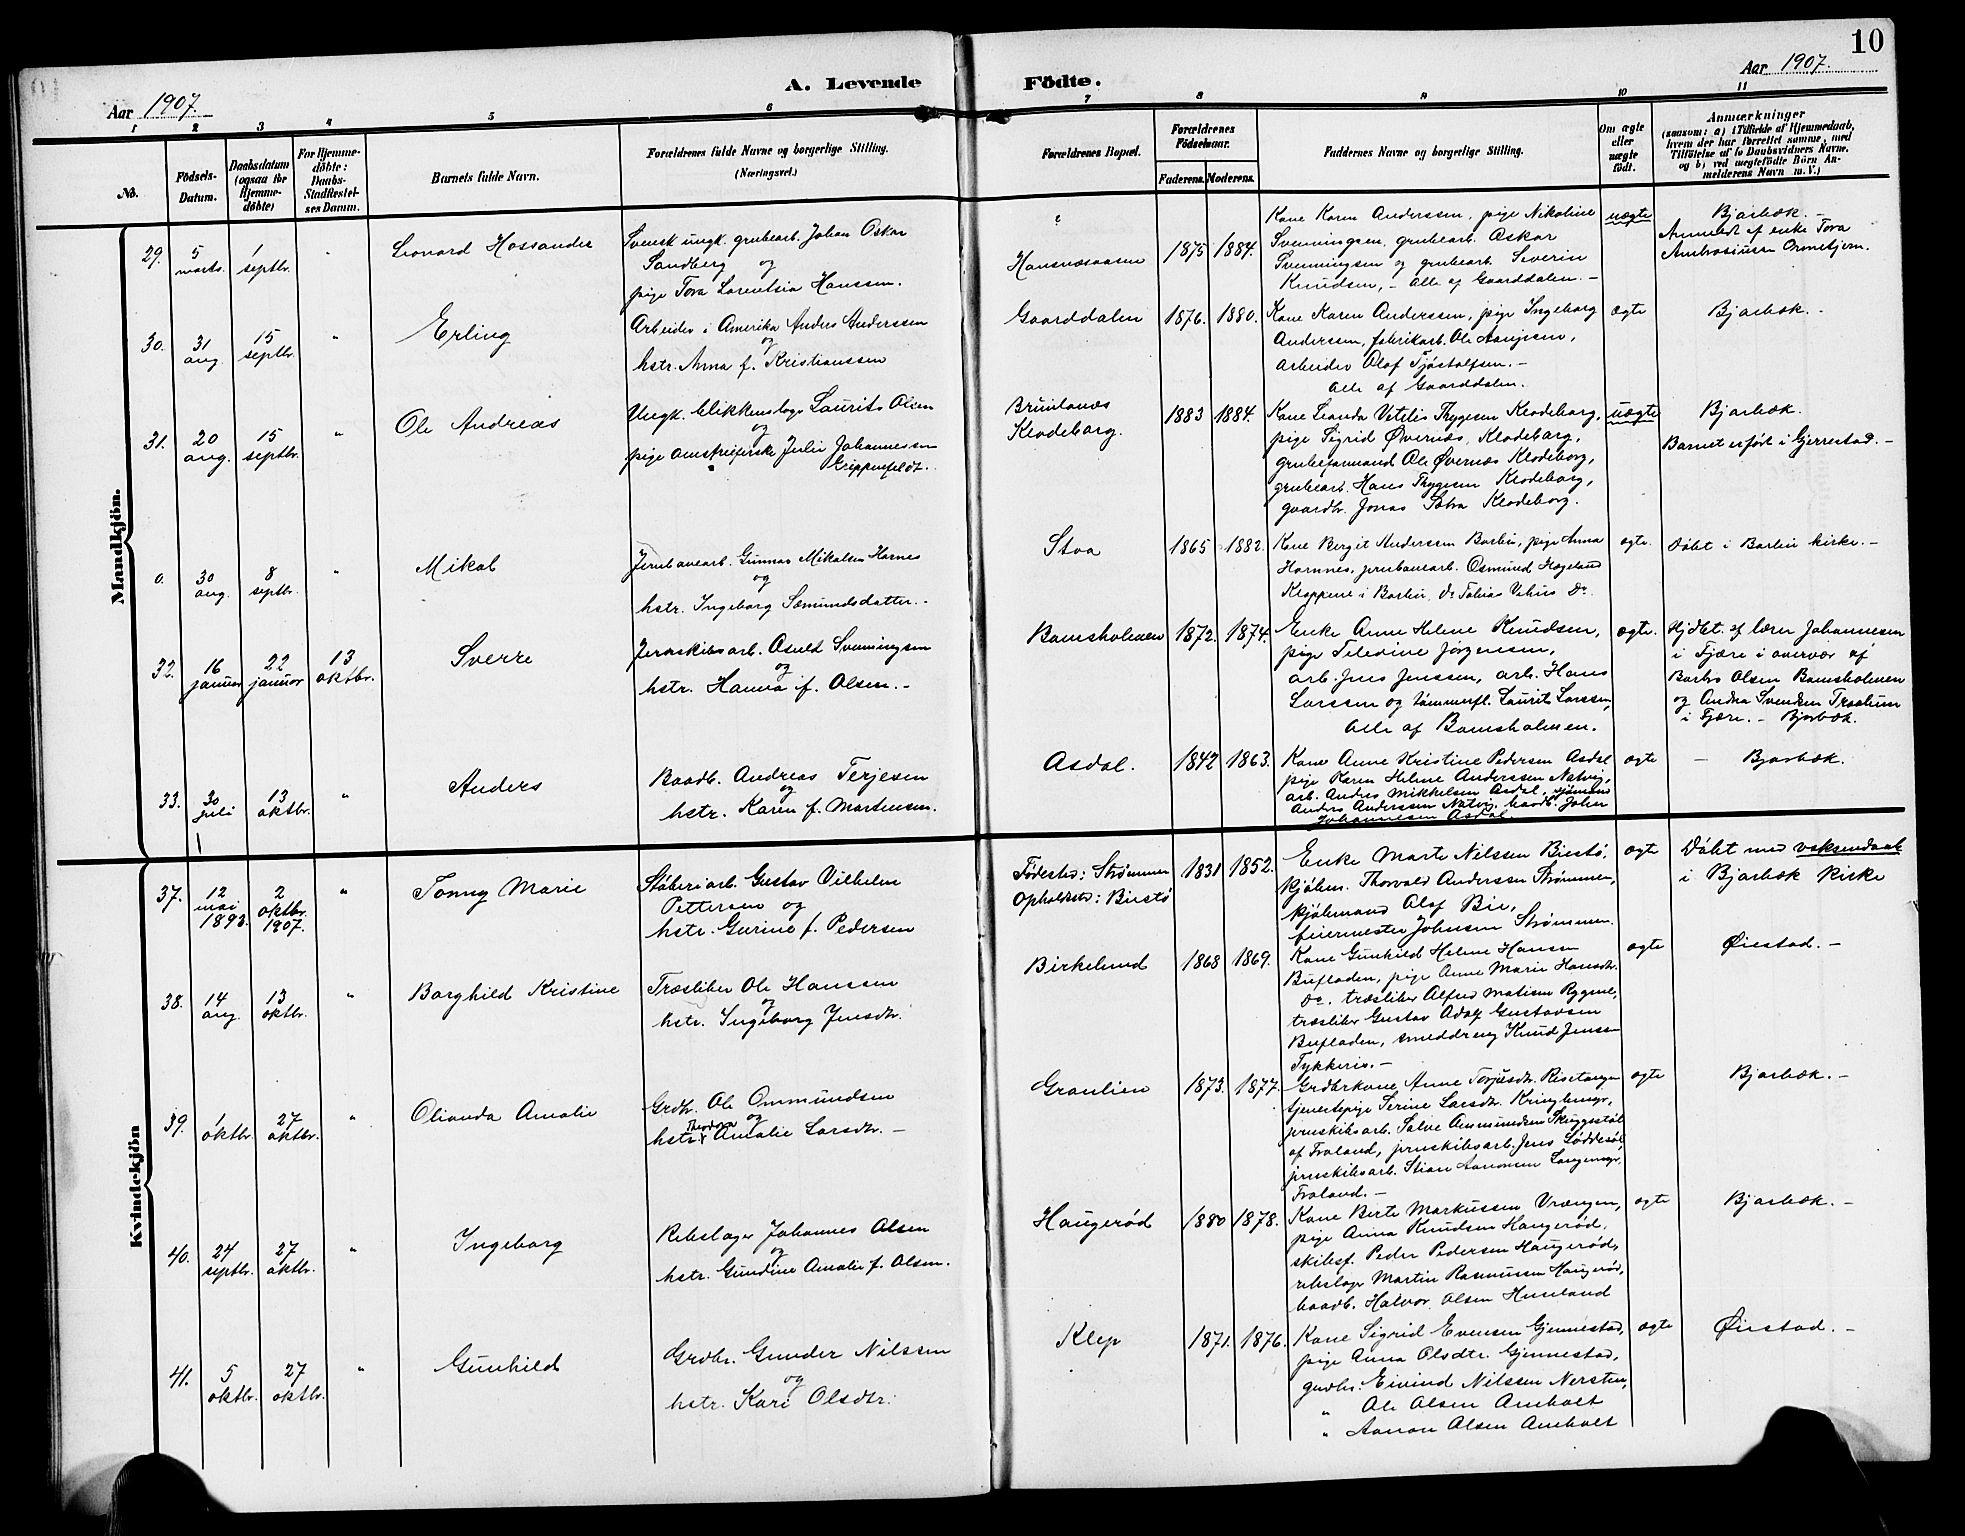 10
A. Levende Födte.
Aar 1907.
Aar 1907.
1 2 3 4 5 6 7 8 9 10 11
No.
Födsels-
Datum.
Daabsdatum
(ogsaa for
Hjemme-
döbte)
For Hjemme-
döbte:
Daabs-
Stadfæstel-
ses Datum.
Barnets fulde Navn.
Forældrenes fulde Navne og borgerlige Stilling.
(Næringsvei.)
Forældrenes Bopæl.
Forældrenes
Födselsaar.
Faderens. Moderens.
Faddernes Navne og borgerlige Stilling.
Om ægte
eller
uægte
födt.
Anmærkninger
(saasom: a) i Tilfælde af Hjemmedaab,
hvem der har forrettet samme, med
Tilföielse af to Daabsvidners Navne,
og b) ved uegtefödte Börn An-
melderens Navn m. V.)
Mandkjön.
29.
5
marts.
1
septbr.
"
Leonard Hossander
Svensk ungk. grubearb. Johan Oskar
Sandberg og
pige Tora Lorentsia Hanssen.
Hansvæsaasen
1875 1884.
Kone Karen Anderssen, pige Nikoline
Svenningsen, grubearb. Oskar
Svenningsen og grubearb. Severin
Knudsen, - Alle af Gaarddalen. -
uægte
Bjorbæk. -
Anmeldt af enke Tora
Ambrosiusen Ormetjern.
30.
31
aug.
15
septbr.
"
Erling
Arbeider i Amerika Anders Anderssen
og
hstr. Anna f. Kristianssen
Gaarddalen
1876. 1880.
Kone Karen Anderssen, pige Ingeborg
Anderssen, fabrikarb. Ole Aanjesen,
arbeider Olaf Tjøstolfsen. -
Alle af Gaarddalen.
ægte
Bjorbæk. -
31.
20
aug.
15
septbr.
"
Ole Andreas
Ungk. blikkenslager Laurits Olsen
og
pige Julie Johannessen
Brunlanæs
Klodeborg.
1883 1884.
Kone Leanda Vetelis Thygesen Klodeborg,
pige Sigrid Øvernæs, Klodeborg,
grubeformand Ole Øvernæs Klodeborg,
grubearb. Hans Thygesen Klodeborg,
gaardbr. Jonas Klodeborg.
uægte
Bjorbæk.
Barnet er født i Gjerrestad. -
0.
30
aug.
8
septbr.
"
Mikal
Jernbanearb. Gunnar Mikalsen Hornes
og
hstr. Ingeborg Sæmundsdatter. -
Stoa
1865 1882.
Kone Bergit Anderssen Barbu, pige Anna
Hornnes, jernbanearb. Osmund Hægeland
Kloppene i Barbu, Do Tobias Do.
ægte.
Døbt i Barbu kirke. -
32.
16
januar
22
januar
13
oktbr.
Sverre
Jernskibsarb. Osuld Svenningsen
og
hstr. Hanna f. Olsen. -
Bomsholmen
1872. 1874.
Enke Anne Helene Knudsen,
pige Seledine Jørgensen,
arb. Jens Jenssen, arb. Hans
Larssen og tømmerfl. Laurits Larssen,
Alle af Bomsholmen.
ægte.
Hjdbt. af lærer Johannesen
i Fjære i overvær af
Barbro Olsen Bomsholmen
og Andrea Svendsen
i Fjære. - Bjorbæk.
33.
30
juli
13
oktbr.
"
Anders
Baadb. Andreas Terjesen
og
hstr. Karen f. Mortensen.
Asdal.
1842 1863.
Kone Anne Kristine Pedersen Asdal
pige Karen Helene Anderssen Natvig,
arb. Anders Mikkelsen Asdal, sjømand
Anders Anderssen Natvig, baadb. Johan
Johannesen Asdal.
ægte
- Bjorbæk.
Kvindekjön
37.
12
mai
1893.
2
oktbr.
1907.
"
Tonny Marie
Støberiarb. Gustav Vilhelm
Pettersen og
hstr. Gurine f. Pedersen
Fødested: Strømmen
Opholdsted: Biestø
1831 1852.
Enke Marte Nilssen Biestø,
kjøbm. Thorvald Anderssen Strømmen,
kjøbmand Olaf Bie,
feiermester Johnsen Strømmen.
ægte
Døbt med voksendaab
i Bjorbæk Kirke
38.
14
aug.
13
oktbr.
"
Borghild Kristine
Træsliber Ole Hanssen
og
hstr. Ingeborg Jensdtr.
Birkelund
1868 1869.
Kone Gunhild Helene Hansen
Bufladen, pige Anne Marie Hansdtr.
Do. træsliber Alfred Matisen Rygene,
træsliber Gustav Adolf Gustavsen
Bufladen, smeddreng Knud Jenssen
Tykkeris. -
ægte
Øiestad. -
39.
1
oktbr.
27
oktbr.
"
Olianda Amalie
Grdbr. Ole Ommundsen
og
hstr. Theodora Amalie Larsdtr. -
Granlien
1873. 1877.
Grdbrkone Anne Torjusdtr. Risetangen
tjenestepige Serine Larsdtr. Kringlemyr,
jernskibsarb. Salve Ommundsen Skuggestøl
af Froland, jernskibsarb. Jens Løddesøl,
jernskibsarb. Stian Aanonsen Langemyr,
Froland. -
ægte
Bjorbæk. -
40.
24
septbr.
27
oktbr.
"
Ingeborg
Rebslager Johannes Olsen
og
hstr. Gundine Amalie f. Olsen.
Haugerød
1880 1878.
Kone Birte Markussen Vrængen,
pige Anna Knudsen Haugerød,
skibsf. Peder Pedersen Haugerød,
rebslager Martin Rasmussen Haugerød,
baadb. Halvor Olsen Huseland
ægte
Bjorbæk. -
41.
5
oktbr.
27
oktbr.
"
Gunhild
Grdbr. Gunder Nilssen
og
hstr. Kari Olsdtr.
Klep
1871. 1876.
Kone Sigrid Evensen Gjennestad,
pige Anna Olsdtr. Gjennestad,
grdbr. Eivind Nilssen Nersten,
" Ole Olsen Amholt
" Aanon Olsen Amholt
ægte
Øiestad. -